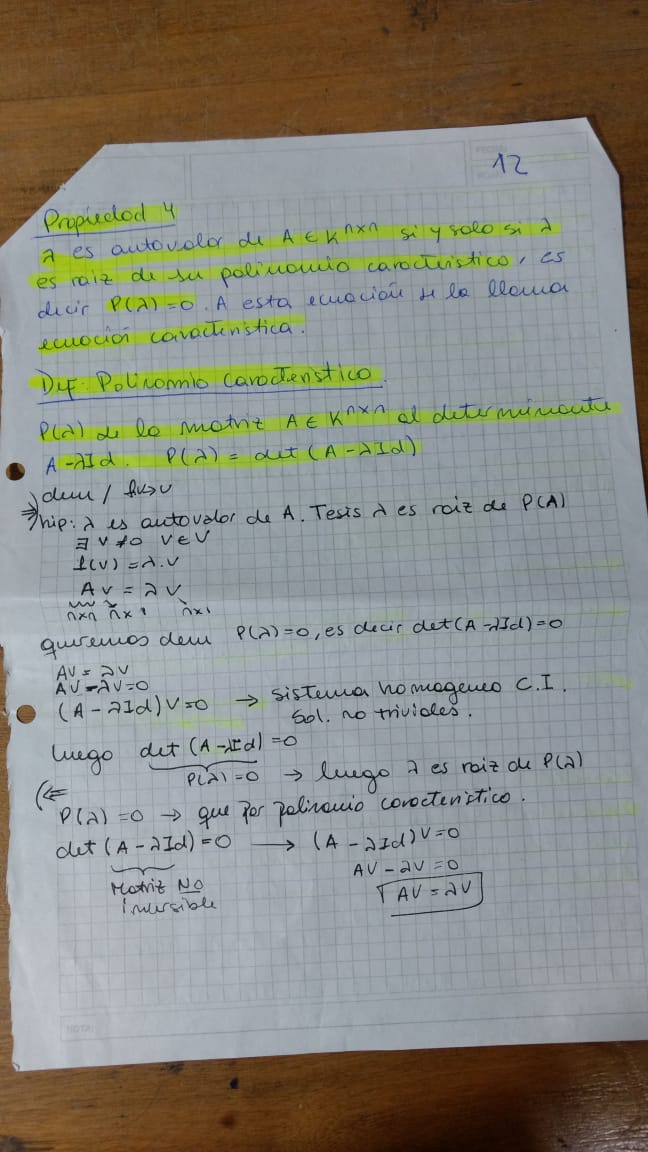 12
Propiedad 4
λ es autovalor de A ∈ K^{n×n} si y solo si λ
es raiz de su polinomio caracteristico, es
decir P(λ)=0. A esta ecuación se la llama
ecuación caracteristica.
Def: Polinomio Caracteristico
P(λ) de la matriz A ∈ K^{n×n} al determinante
A-λId. P(λ) = det(A-λId)
⇒) dem /
hip: λ es autovalor de A. Tesis λ es raiz de P(λ)
∃ v ≠ 0 v ∈ V
f(v) = λ.v
Av = λv
n×n n×1 n×1
queremos dem P(λ)=0, es decir det(A-λId)=0
Av = λv
Av-λv=0
(A-λId)v=0 → sistema homogeneo C.I.
Sol. no triviales.
luego det(A-λId)=0
P(λ)=0 → luego λ es raiz de P(λ)
(⇐
P(λ)=0 → que por polinomio caracteristico.
det(A-λId)=0 → (A-λId)v=0
Av-λv=0
Matriz NO
Av=λv
inversible
NOTA: